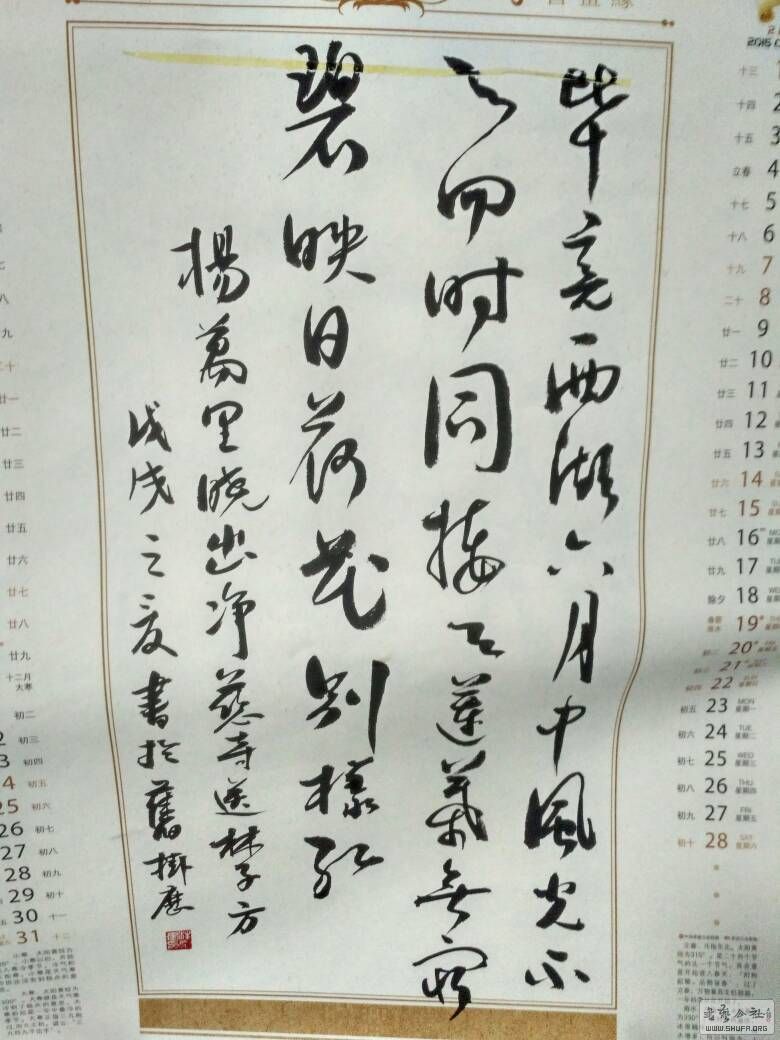 畫緣
毕竟西湖六月中風光不
与四时同接天蓮葉無窮
碧映日荷花别樣红
楊萬里曉出净慈寺送林子方
戊戌之夏書於舊掛歷
2015
十三
十四 2
十五 3
立春 4
十七 5
十八 6
十九 7
二十 8
廿一 9
廿二 10
廿三 11
廿四 12
廿五 13
廿六 14
廿七 15
廿八 16
廿九 17
除夕 18
19
20
21
初四 22
初五 23 MON 星期一
初六 24 TUE 星期二
初七 25 WED 星期三
初八 26 THU 星期四
初九 27 FRI 星期五
初十 28 SAT 星期六
廿一
廿二
廿三
廿四
廿五
廿六
廿七
廿八
廿九
十二月 大寒
初二
初三
初四
初五
25 初六
26 初七
27 初八
28 初九
29 初十
30 十一
31 十二
書藝公社
WWW.SHUFA.ORG